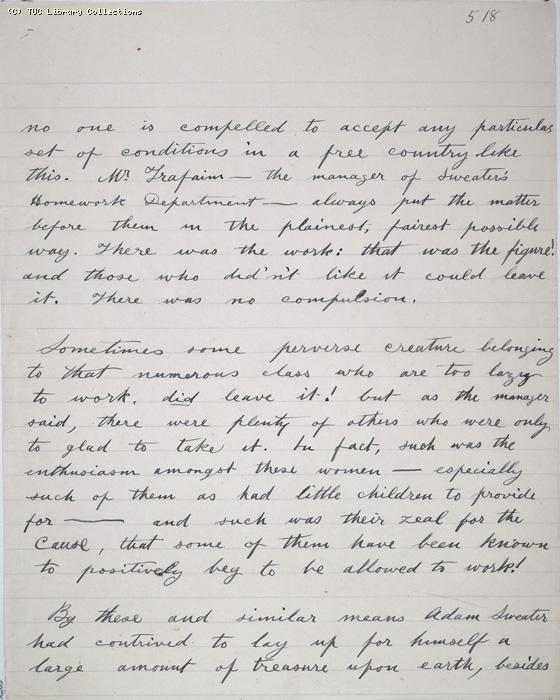 (C) TUC Library Collections
518
no one is compelled to accept any particular
set of conditions in a free country like
this. Mr Trafaim — the manager of Sweater's
Homework Department — always put the matter
before them in the plainest, fairest possible
way. There was the work: that was the figure!
and those who did'n't like it could leave
it. There was no compulsion.
Sometimes some perverse creature belonging
to that numerous class who are too lazy
to work, did leave it! but as the manager
said, there were plenty of others who were only
to glad to take it. In fact, such was the
enthusiasm amongst these women — especially
such of them as had little children to provide
for — and such was their zeal for the
Cause, that some of them have been known
to positively beg to be allowed to work!
By these and similar means Adam Sweater
had contrived to lay up for himself a
large amount of treasure upon earth, besides